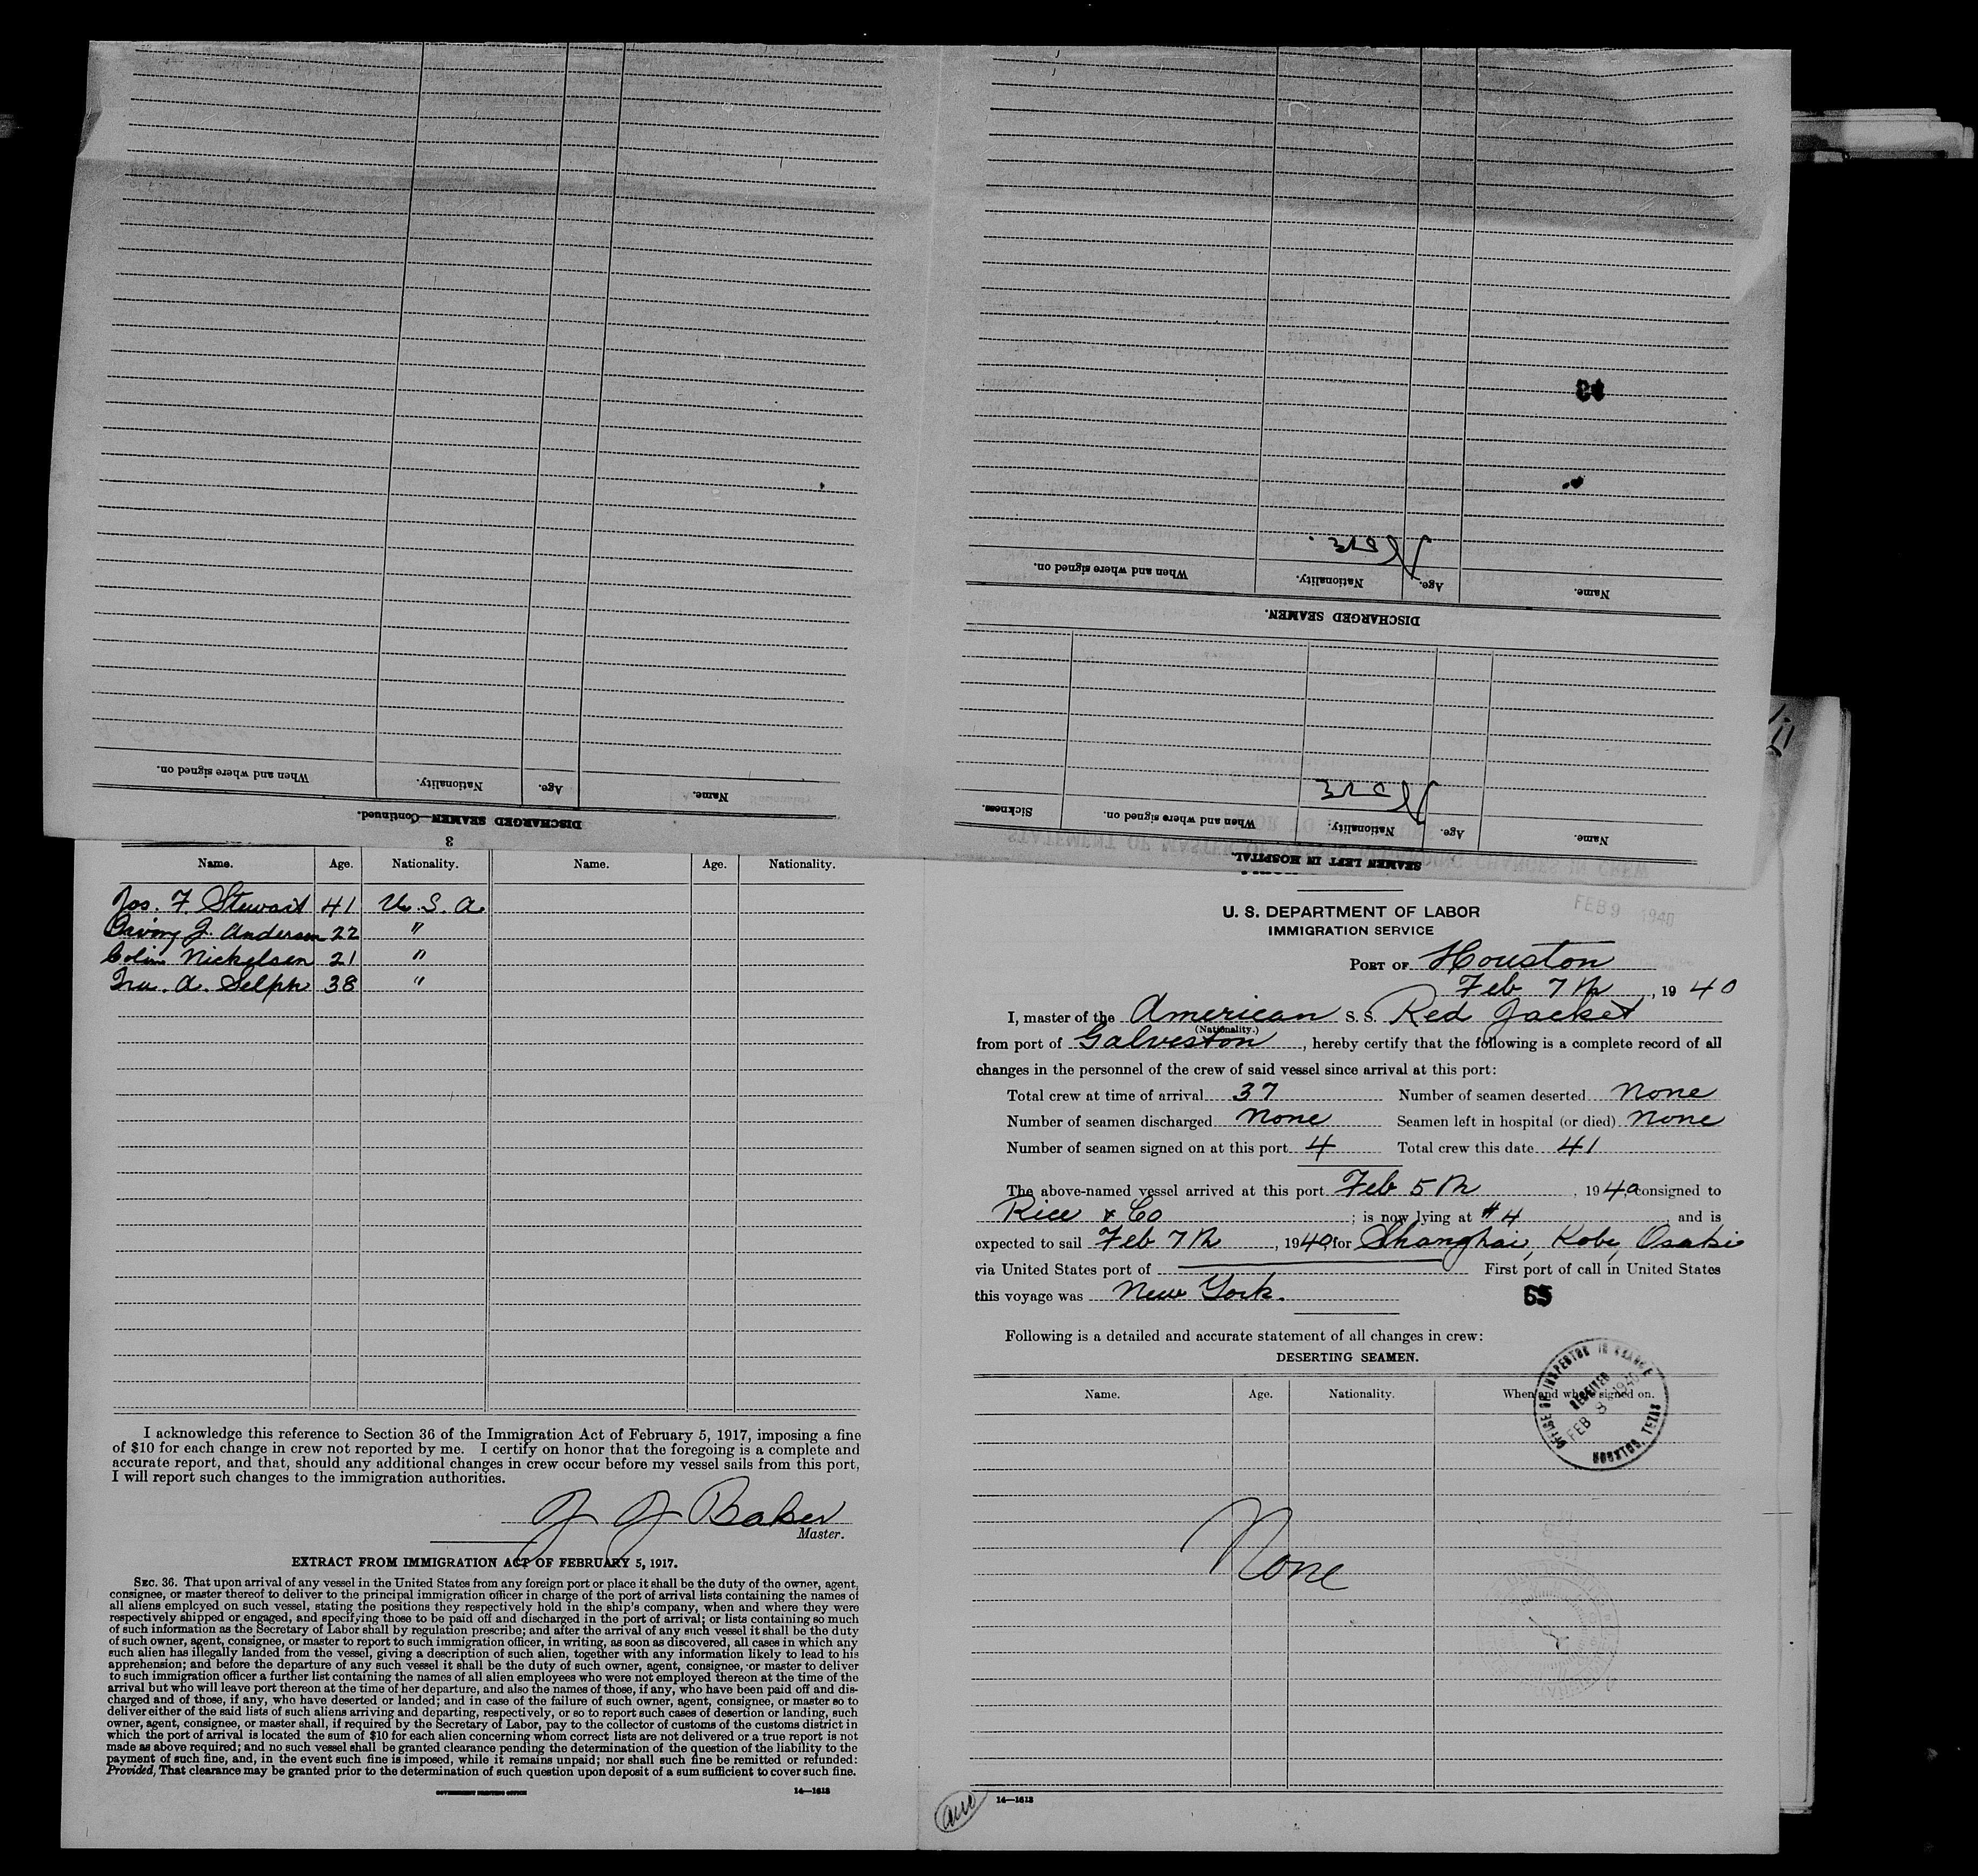 DISCHARGED SEAMEN—Continued.
Name.	Age.	Nationality.	When and where signed on.
3
SEAMEN LEFT IN HOSPITAL.
Name.	Age.	Nationality.	When and where signed on.	Sickness.
None
DISCHARGED SEAMEN.
Name.	Age.	Nationality.	When and where signed on.
None.
Name.	Age.	Nationality.	Name.	Age.	Nationality.
Jos. F. Stewart	41	U. S. A.
J. Anderson	22	"
Colin Nickelsen	21	"
Ira. A. Selph	38	"
I acknowledge this reference to Section 36 of the Immigration Act of February 5, 1917, imposing a fine
of $10 for each change in crew not reported by me. I certify on honor that the foregoing is a complete and
accurate report, and that, should any additional changes in crew occur before my vessel sails from this port,
I will report such changes to the immigration authorities.
J J Baker
Master.
EXTRACT FROM IMMIGRATION ACT OF FEBRUARY 5, 1917.
SEC. 36. That upon arrival of any vessel in the United States from any foreign port or place it shall be the duty of the owner, agent,
consignee, or master thereof to deliver to the principal immigration officer in charge of the port of arrival lists containing the names of
all aliens employed on such vessel, stating the positions they respectively hold in the ship's company, when and where they were
respectively shipped or engaged, and specifying those to be paid off and discharged in the port of arrival; or lists containing so much
of such information as the Secretary of Labor shall by regulation prescribe; and after the arrival of any such vessel it shall be the duty
of such owner, agent, consignee, or master to report to such immigration officer, in writing, as soon as discovered, all cases in which any
such alien has illegally landed from the vessel, giving a description of such alien, together with any information likely to lead to his
apprehension; and before the departure of any such vessel it shall be the duty of such owner, agent, consignee, or master to deliver
to such immigration officer a further list containing the names of all alien employees who were not employed thereon at the time of the
arrival but who will leave port thereon at the time of her departure, and also the names of those, if any, who have been paid off and dis-
charged and of those, if any, who have deserted or landed; and in case of the failure of such owner, agent, consignee, or master so to
deliver either of the said lists of such aliens arriving and departing, respectively, or so to report such cases of desertion or landing, such
owner, agent, consignee, or master shall, if required by the Secretary of Labor, pay to the collector of customs of the customs district in
which the port of arrival is located the sum of $10 for each alien concerning whom correct lists are not delivered or a true report is not
made as above required; and no such vessel shall be granted clearance pending the determination of the question of the liability to the
payment of such fine, and, in the event such fine is imposed, while it remains unpaid; nor shall such fine be remitted or refunded:
Provided, That clearance may be granted prior to the determination of such question upon deposit of a sum sufficient to cover such fine.
GOVERNMENT PRINTING OFFICE	14—1613
FEB 9 1940
U. S. DEPARTMENT OF LABOR
IMMIGRATION SERVICE
PORT OF Houston
Feb 7th, 1940
I, master of the American S. S. Red Jacket
(Nationality.)
from port of Galveston, hereby certify that the following is a complete record of all
changes in the personnel of the crew of said vessel since arrival at this port:
Total crew at time of arrival 37	Number of seamen deserted none
Number of seamen discharged none	Seamen left in hospital (or died) none
Number of seamen signed on at this port 4	Total crew this date 41
The above-named vessel arrived at this port Feb 5th, 1940, consigned to
Rice & Co; is now lying at #4 and is
expected to sail Feb 7th, 1940, for Shanghai, Kobe, Osaki
via United States port of ——— First port of call in United States
this voyage was New York.
65
Following is a detailed and accurate statement of all changes in crew:
DESERTING SEAMEN.
Name.	Age.	Nationality.	When and where signed on.
OFFICE OF INSPECTOR IN CHARGE
RECEIVED
FEB 8 1940
HOUSTON, TEXAS
None
14—1613